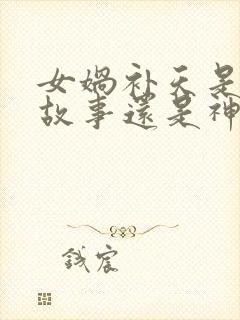 女娲补天是
故事还是神
钱宸